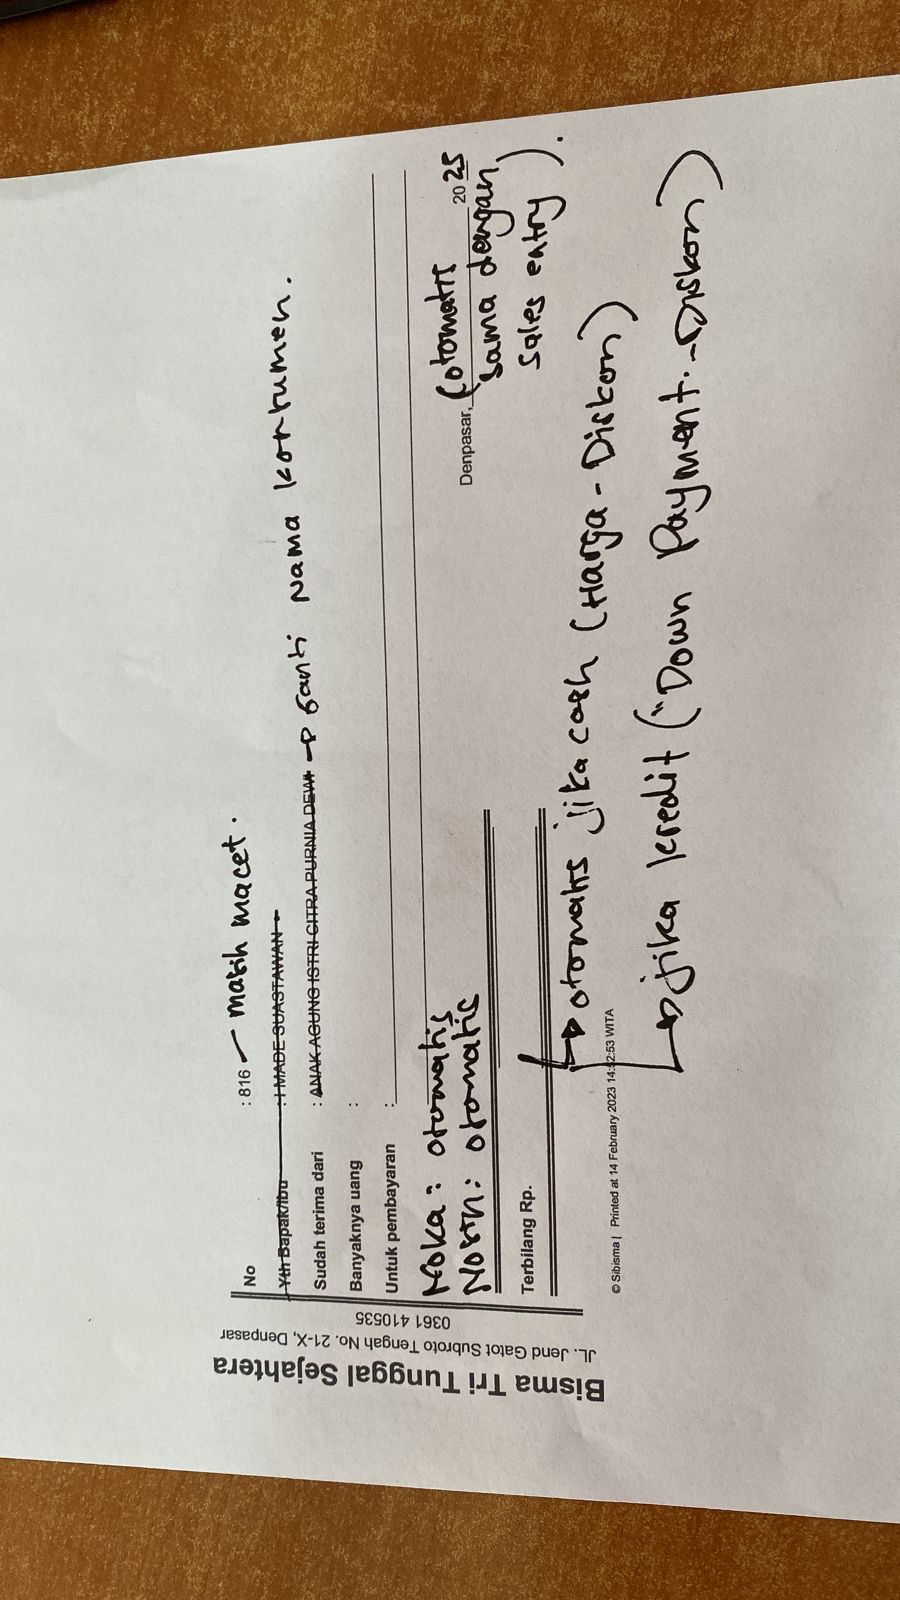 Bisma Tri Tunggal Sejahtera
JL. Jend Gatot Subroto Tengah No. 21-X, Denpasar
0361 410535
No : 816 masih macet.
Yth Bapak/Ibu : I MADE SUASTAWAN
Sudah terima dari : ANAK AGUNG ISTRI CITRA PURNIA DEWI → ganti nama konsumen.
Banyaknya uang :
Untuk pembayaran :
Noka : otomatis
Nosin : otomatis
Denpasar, (otomatis 2025
sama dengan
sales entry).
Terbilang Rp.
→ otomatis jika cash (Harga - Diskon)
© Sibisma | Printed at 14 February 2023 14:52:53 WITA
→ jika kredit ("Down Payment - Diskon)